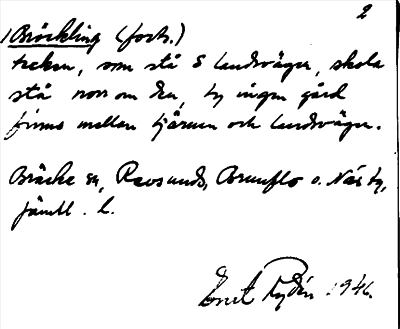 2
1 Bräckling (forts.)
tecken, som stå S landsvägen, skola
stå norr om den, ty ingen gård
finns mellan tjärnen och landsvägen.
Bräcke sn, Revsunds, Brunflo o. Näs tg,
Jämtl. l.
Ernst Rydén 1946.